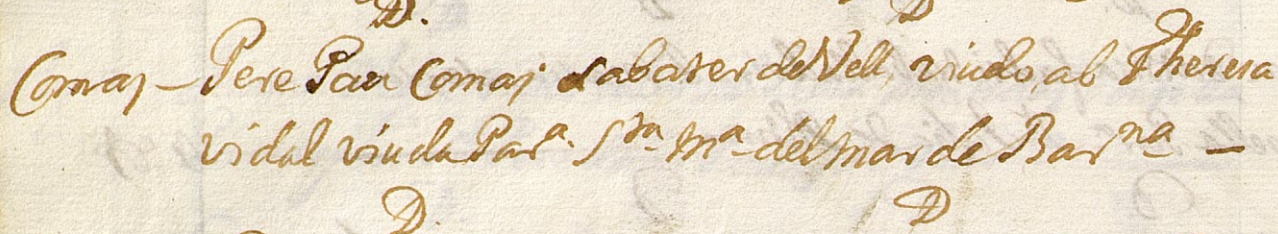 D. D
Comas - Pere Pau Comas sabater de Vell, viudo, ab Theresa
vidal viuda Par.ª Sta Mª del mar de Barna -
D. D